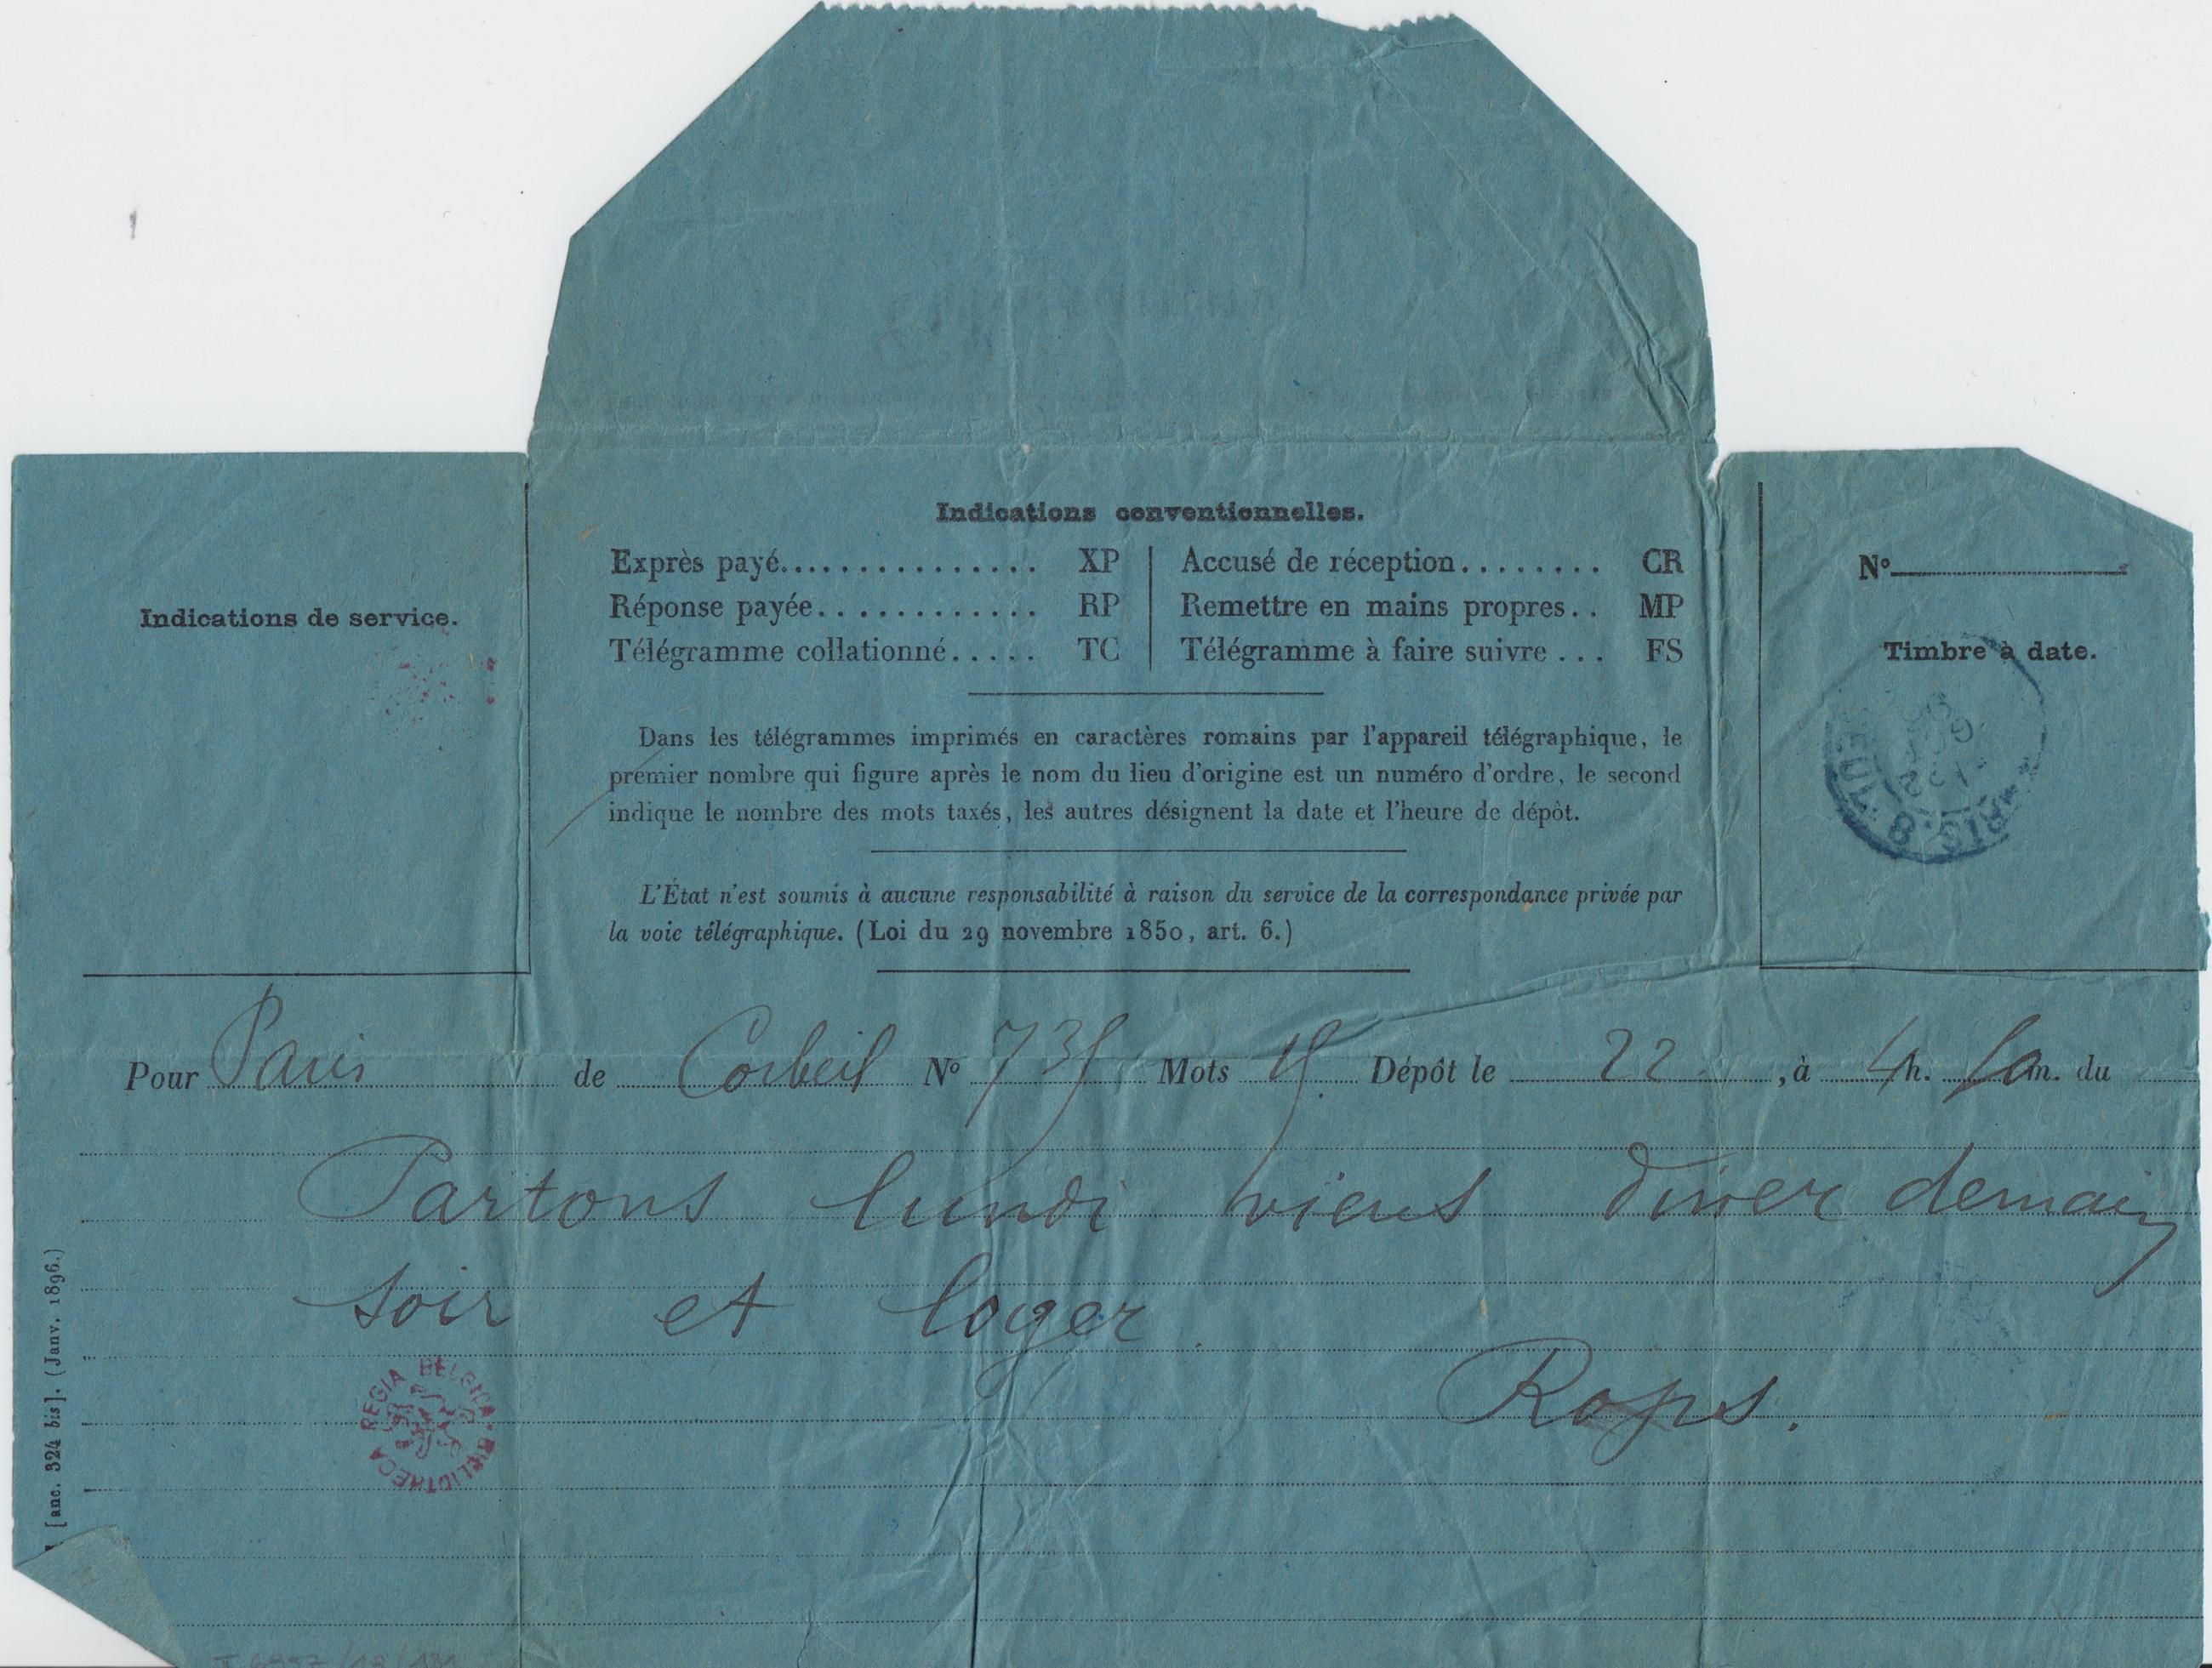 Indications conventionnelles.
Exprès payé............... XP
Réponse payée............ RP
Télégramme collationné..... TC
Accusé de réception........ CR
Remettre en mains propres.. MP
Télégramme à faire suivre... FS
Indications de service.
N°
Timbre à date.
Dans les télégrammes imprimés en caractères romains par l'appareil télégraphique, le
premier nombre qui figure après le nom du lieu d'origine est un numéro d'ordre, le second
indique le nombre des mots taxés, les autres désignent la date et l'heure de dépôt.
L'État n'est soumis à aucune responsabilité à raison du service de la correspondance privée par
la voie télégraphique. (Loi du 29 novembre 1850, art. 6.)
Pour Paris de Corbeil N° 735 Mots 15 Dépôt le 22, à 4h. m. du
Partons lundi viens diner demain
soir et loger.
Rops.
[anc. 324 bis]. (Janv. 1896.)
BIBLIOTHECA REGIA BELGICA